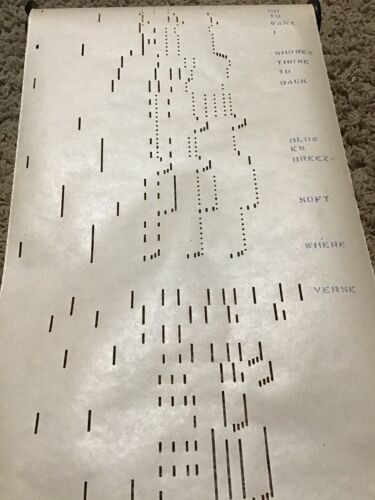 GO
TO
WANT
I
SHORES
THOSE
TO
BACK
BLOW
ES
BREEZ-
SOFT
WHERE
VERSE